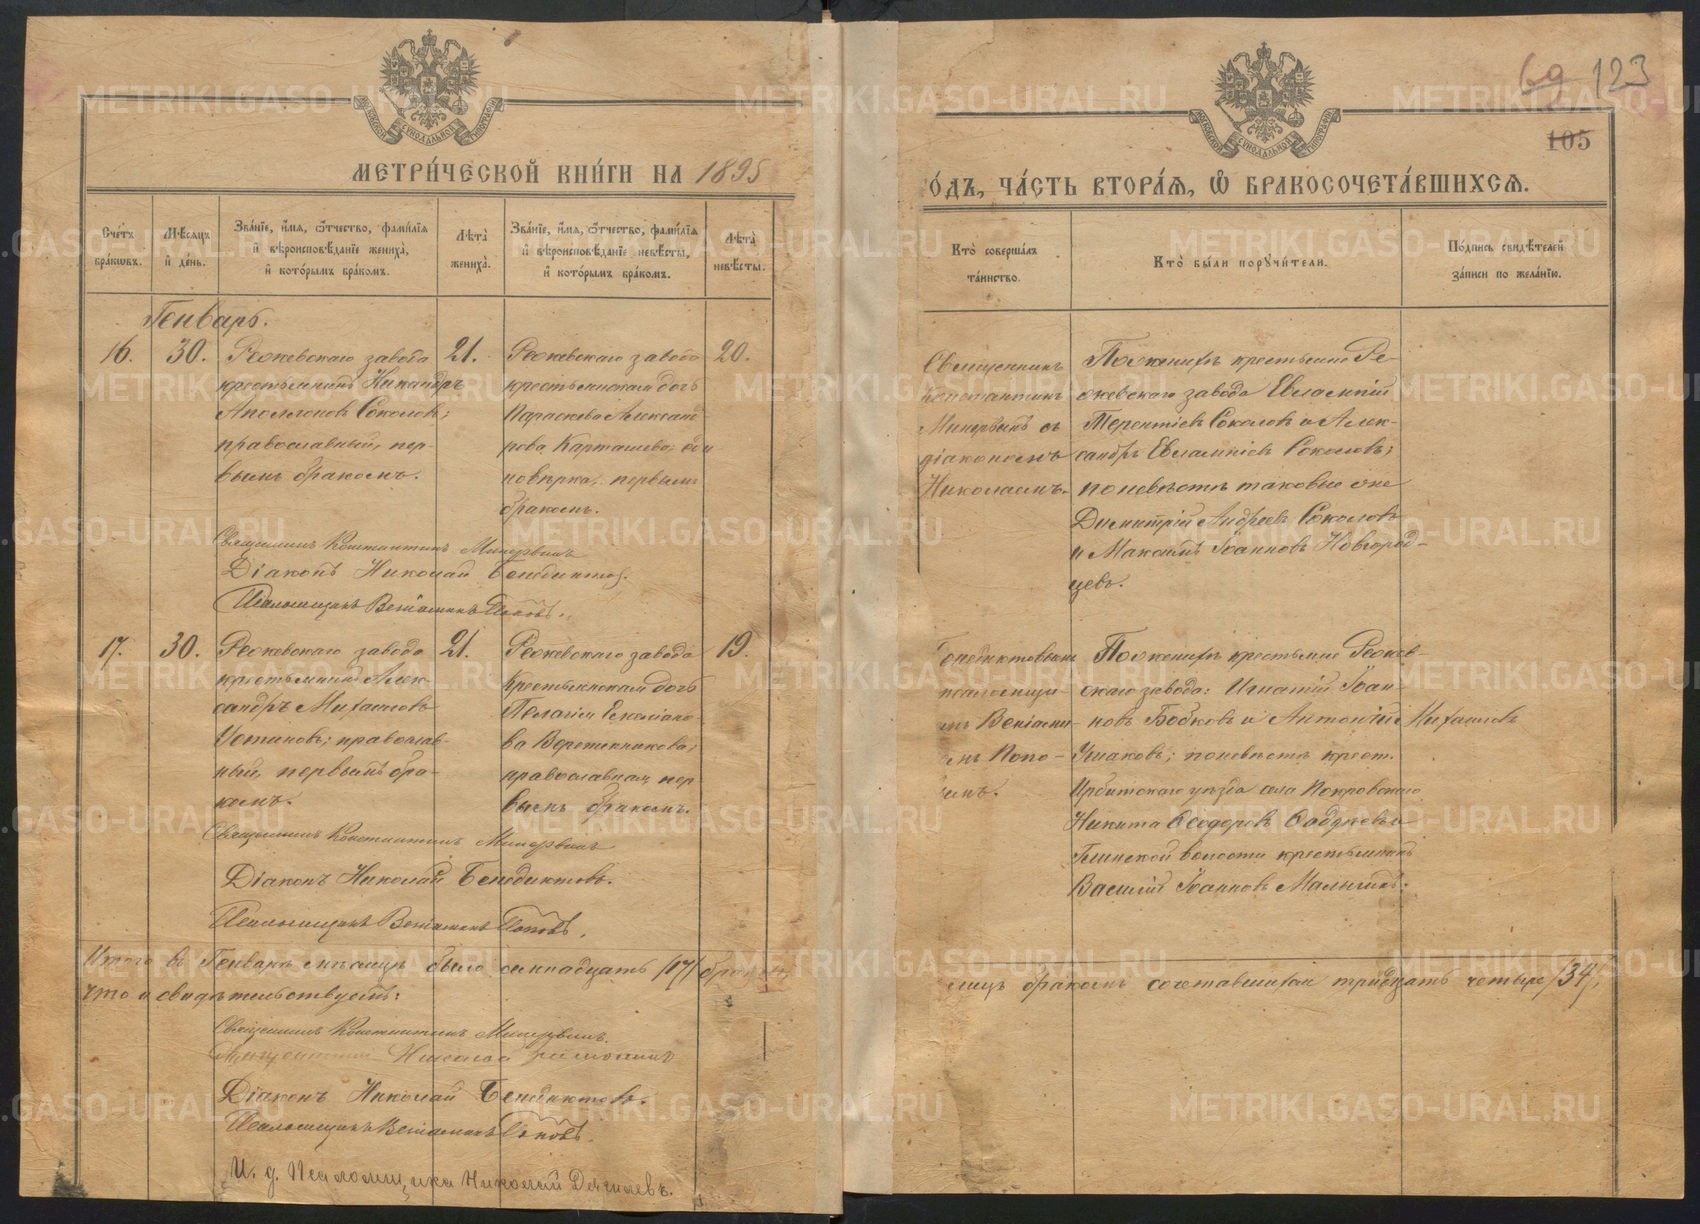 69 123
105
МЕТРИ́ЧЕСКОЙ КНИ́ГИ НА 1895
О́ДЪ, ЧА́СТЬ ВТОРА́Я, Ѽ БРАКОСОЧЕТА́ВШИХСЯ.
Сче́тъ бра́кѡвъ.
Мѣ́сяцъ и де́нь.
Зва́нїе, и́мя, ѻ́тчество, фами́лїя и҆ вѣроисповѣ́данїе жениха̀, и҆ кото́рымъ бра́комъ.
Лѣ́та жениха̀.
Зва́нїе, и́мя, ѻ́тчество, фами́лїя и҆ вѣроисповѣ́данїе невѣ́сты, и҆ кото́рымъ бра́комъ.
Лѣ́та невѣ́сты.
Кто̀ соверша́лъ та́инство.
Кто̀ бы́ли поручи́тели.
По́дпись свидѣ́телей за́писи по жела́нїю.
Генварь.
16. 30.
Режевскаго завода
крестьянинъ Никандръ
Аполлоновъ Соколовъ;
православный, пер-
вымъ бракомъ.
21.
Режевскаго завода
крестьянская дочь
Параскева Александ
рова Карташева, еди
новѣрка, первымъ
бракомъ.
20.
Священникъ
Константинъ
Минервинъ съ
діакономъ
Николаемъ
По женихѣ крестьяне Ре-
жевскаго завода Евлампій
Терентіевъ Соколовъ и Алек-
сандръ Евлампіевъ Соколовъ;
по невѣстѣ таковые же
Димитрій Андреевъ Соколовъ
и Максимъ Іоанновъ Новгород-
цевъ.
Священникъ Константинъ Минервинъ
Діаконъ Николай Бенедиктовъ.
Псаломщикъ Веніаминъ Поповъ.
17. 30.
Режевскаго завода
крестьянинъ Алек-
сандръ Михаиловъ
Устиновъ; православ-
ный, первымъ бра-
комъ.
21.
Режевскаго завода
крестьянская дочь
Пелагія
ва Веретенникова;
православная, пер
вымъ бракомъ.
19.
Бенедиктовымъ
псаломщи-
Веніами-
Попо-
вымъ.
По женихѣ крестьяне Режев
скаго завода: Игнатій Іоан-
новъ Бобковъ и Антоній Михаиловъ
Ушаковъ; по невѣстѣ крест.
Ирбитскаго уѣзда села Покровскаго
Никита Ѳеодоровъ
Глинской волости крестьянинъ
Василій Іоанновъ
Священникъ Константинъ Минервинъ
Діаконъ Николай Бенедиктовъ.
Псаломщикъ Веніаминъ Поповъ.
Итого въ Генварѣ мѣсяцѣ было семнадцать /17/ браковъ,
лицъ бракомъ сочетавшихся тридцать четыре /34/,
что и свидѣтельствуемъ:
Священникъ Константинъ Минервинъ.
Священникъ
Діаконъ Николай Бенедиктовъ.
Псаломщикъ Веніаминъ Поповъ.
И. д. Псаломщика Николай Дягилевъ.
METRIKI.GASO-URAL.RU